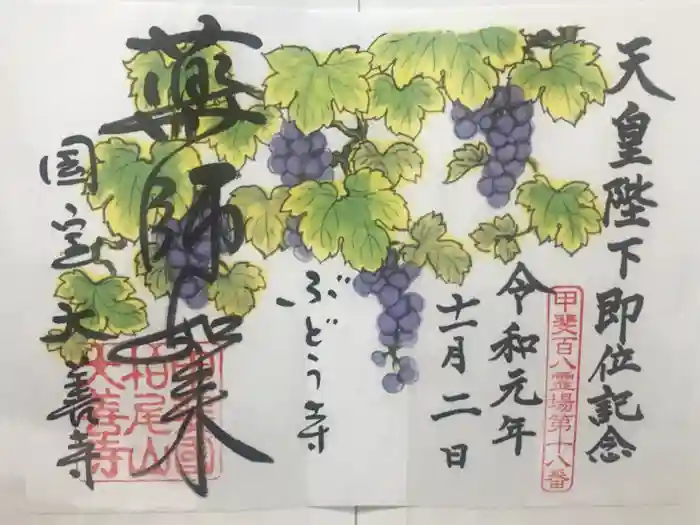 天皇陛下即位記念
甲斐百八霊場第十八番
令和元年
十一月二日
ぶどう寺
薬師如来
国宝大善寺
柏尾山
大善寺